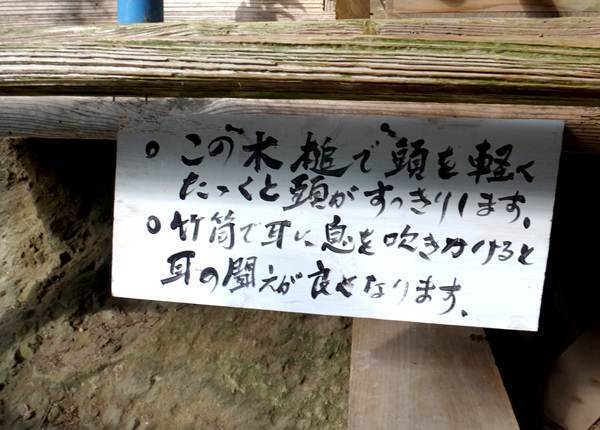 ○この木槌で頭を軽く
たゝくと頭がすっきりします。
○竹筒で耳に息を吹きかけると
耳の聞えが良くなります。